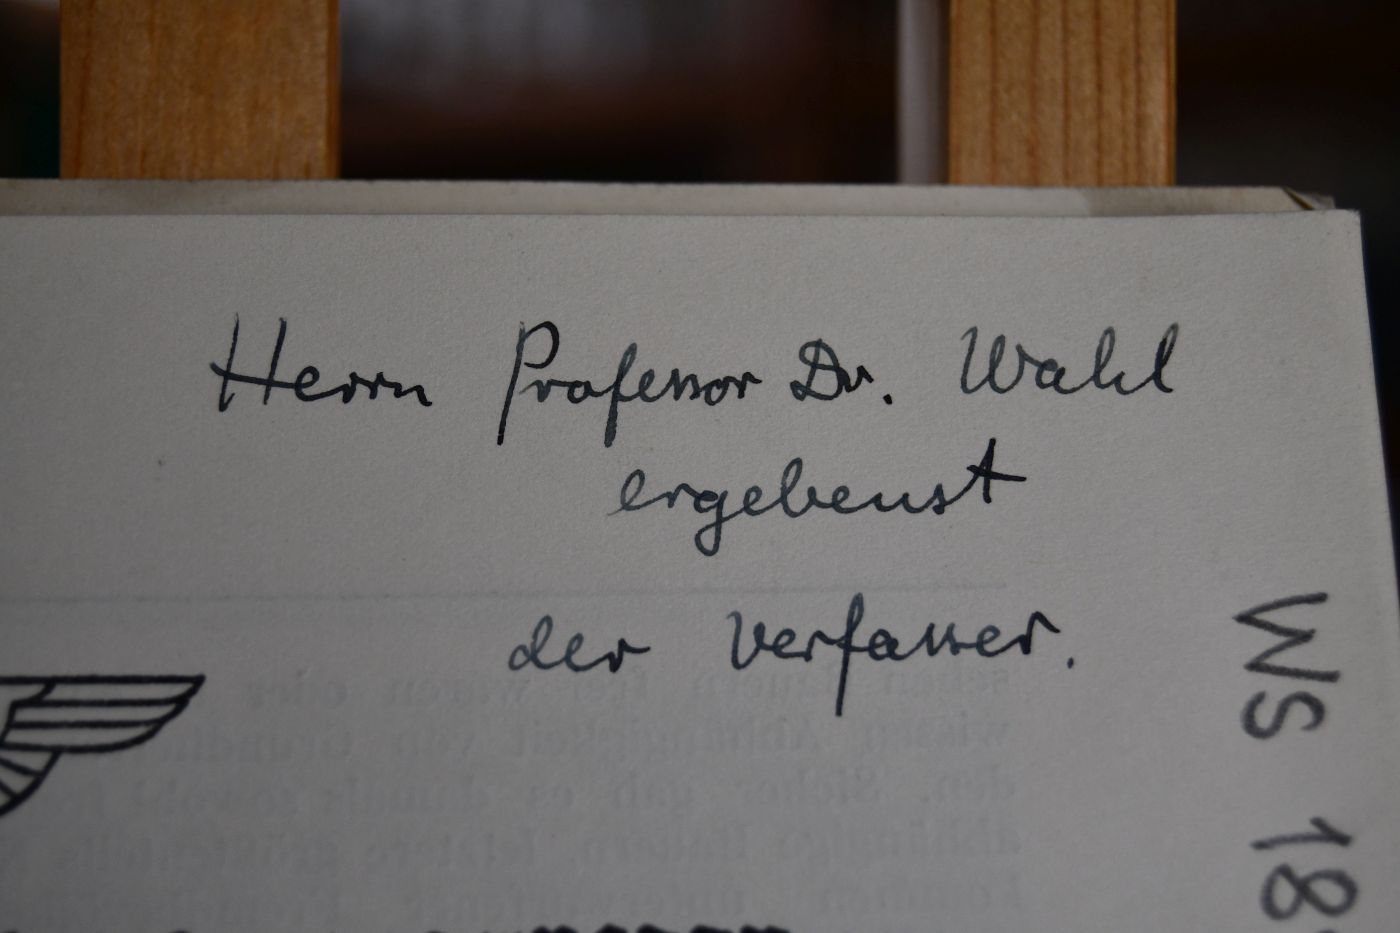 Herrn Professor Dr. Wahl
ergebenst
der Verfasser.
WS 18